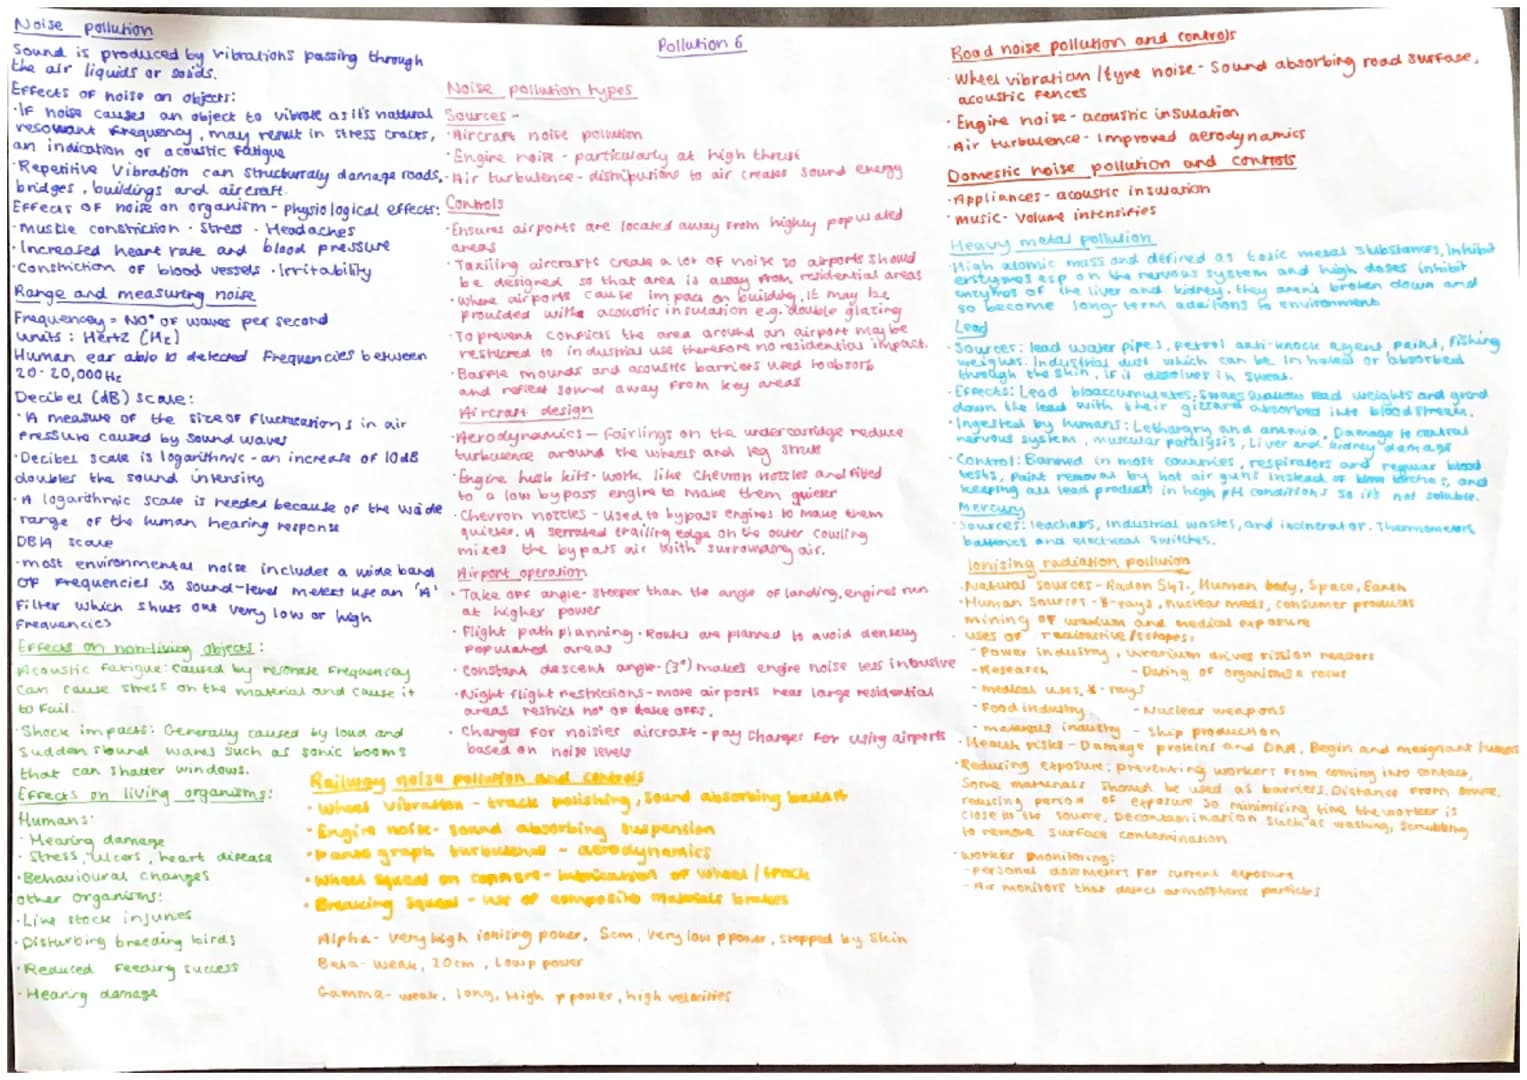 Pollution 6
Noise pollution
Sound is produced by vibrations passing through
the air liquids or solids.
Effects of noise on objects:
·If noise causes an object to vibrate as it's natural
resonant frequency, may result in stress cracks,
an indication of acoustic fatigue
·Repetitive vibration can structurally damage roads,
bridges, buildings and aircraft.
Effects of noise on organism - physiological effects:
·muscle constriction · Stress · Headaches
·Increased heart rate and blood pressure
·Constriction of blood vessels ·Irritability
Range and measuring noise
Frequency = NO° of waves per second
units : Hertz (Hz)
Human ear able to detected frequencies between
20-20,000Hz
Decibel (dB) scale:
·A measure of the size of fluctuations in air
pressure caused by sound waves
·Decibel scale is logarithmic - an increase of 10dB
doubles the sound intensity
·A logarithmic scale is needed because of the wide
range of the human hearing response
DBA scale
·most environmental noise includes a wide band
of frequencies so sound-level meters use an 'A'
Filter which shuts out very low or high
Frequencies
Effects on non-living objects:
Acoustic fatigue: caused by resonate frequency
can cause stress on the material and cause it
to fail.
·Shock impacts: Generally caused by loud and
sudden sound waves such as sonic booms
that can shatter windows.
Effects on living organisms:
Humans:
·Hearing damage
·Stress, ulcers, heart disease
·Behavioural changes
other organisms:
·Live stock injuries
·Disturbing breeding birds
·Reduced feeding success
·Hearing damage
Noise pollution types
Sources -
·Aircraft noise pollution
·Engine noise - particularly at high thrust
·Air turbulence - distributions to air creates sound energy
Controls
·Ensures airports are located away from highly populated
areas
·Taxiing aircrafts create a lot of noise so airports should
be designed so that area is away from residential areas
·Where airports cause impact on building, it may be
provided withe acoustic insulation e.g. double glazing
·To prevent conflicts the area around an airport may be
restricted to industrial use therefore no residential impact.
·Baffle mounds and acoustic barriers used to absorb
and reflect sound away from key areas
Aircraft design
·Aerodynamics - Fairlings on the undercarridge reduce
turbulence around the wheels and leg struts
·Engine hush kits - work like chevron nozzles and fitted
to a low bypass engine to make them quieter
·Chevron nozzles - Used to bypass engines to make them
quieter. A serrated trailing edge on the outer cowling
mixes the bypass air with surrounding air.
Airport operation
·Take off angle - steeper than the angle of landing, engines run
at higher power
·Flight path planning · Routes are planned to avoid densely
populated areas
·Constant descent angle - (3°) makes engine noise less intrusive
·Night flight restrictions - more airports near large residential
areas restrict no° of take offs.
·Charges for noisier aircraft - pay charges for using airports
based on noise levels
Railway noise pollution and controls
·Wheel vibration - track polishing, sound absorbing ballast
·Engine noise - sound absorbing suspension
·Pantograph turbulence - aerodynamics
·Wheel squeal on corners - lubrication of wheel/track
·Breaking squeal - use of composite materials brakes
Alpha - very high ionising power, 5cm, very low p power, stopped by skin
Beta - weak, 20cm, low p power
Gamma - weak, long, high p power, high velocities
Road noise pollution and controls
·Wheel vibration / tyre noise - Sound absorbing road surface,
acoustic fences
·Engine noise - acoustic insulation
·Air turbulence - Improved aerodynamics
Domestic noise pollution and controls
·Appliances - acoustic insulation
·music - volume intensities
Heavy metal pollution
·High atomic mass and defined as toxic metal substances, Inhibit
enzymes esp on the nervous system and high doses inhibit
enzymes of the liver and kidney. they aren't broken down and
so become long-term additions to environment
Lead
·Sources: lead water pipes, petrol anti-knock agent, paint, fishing
weights. Industrial dust which can be inhaled or absorbed
through the skin, if it dissolves in sweat.
·Effects: Lead bioaccumulates; swans swallow lead weights and grind
down the lead with their gizzard absorbed into bloodstream.
·Ingested by humans: Lethargy and anemia, Damage to central
nervous system, muscular paralysis, Liver and kidney damage
·Control: Banned in most countries, respirators and regular blood
tests, paint removal by hot air guns instead of blow torches, and
keeping all lead products in high pH conditions so it's not soluble.
Mercury
·Sources: leachars, industrial wastes, and incinerator. Thermometers
batteries and electrical switches.
Ionising radiation pollution
·Natural sources - Radon 54%, Human body, Space, Earth
·Human Sources - X-rays, nuclear meds, consumer products
mining of uranium and medical exposure
·uses of radioactive isotopes:
- Power industry, uranium drives fission reactors
- Research - Dating of organisms & rocks
- medical uses, X-rays
- Food industry - Nuclear weapons
- materials industry - ship production
·Health risks - Damage proteins and DNA, Begin and malignant tumors
·Reducing exposure: preventing workers from coming into contact,
Some materials should be used as barriers. Distance from source,
reducing period of exposure so minimising time the worker is
close to the source, Decontamination such as washing, scrubbing
to remove surface contamination
·Worker monitoring:
- personal dosemeters for current exposure
- Air monitors that detect atmospheric particles